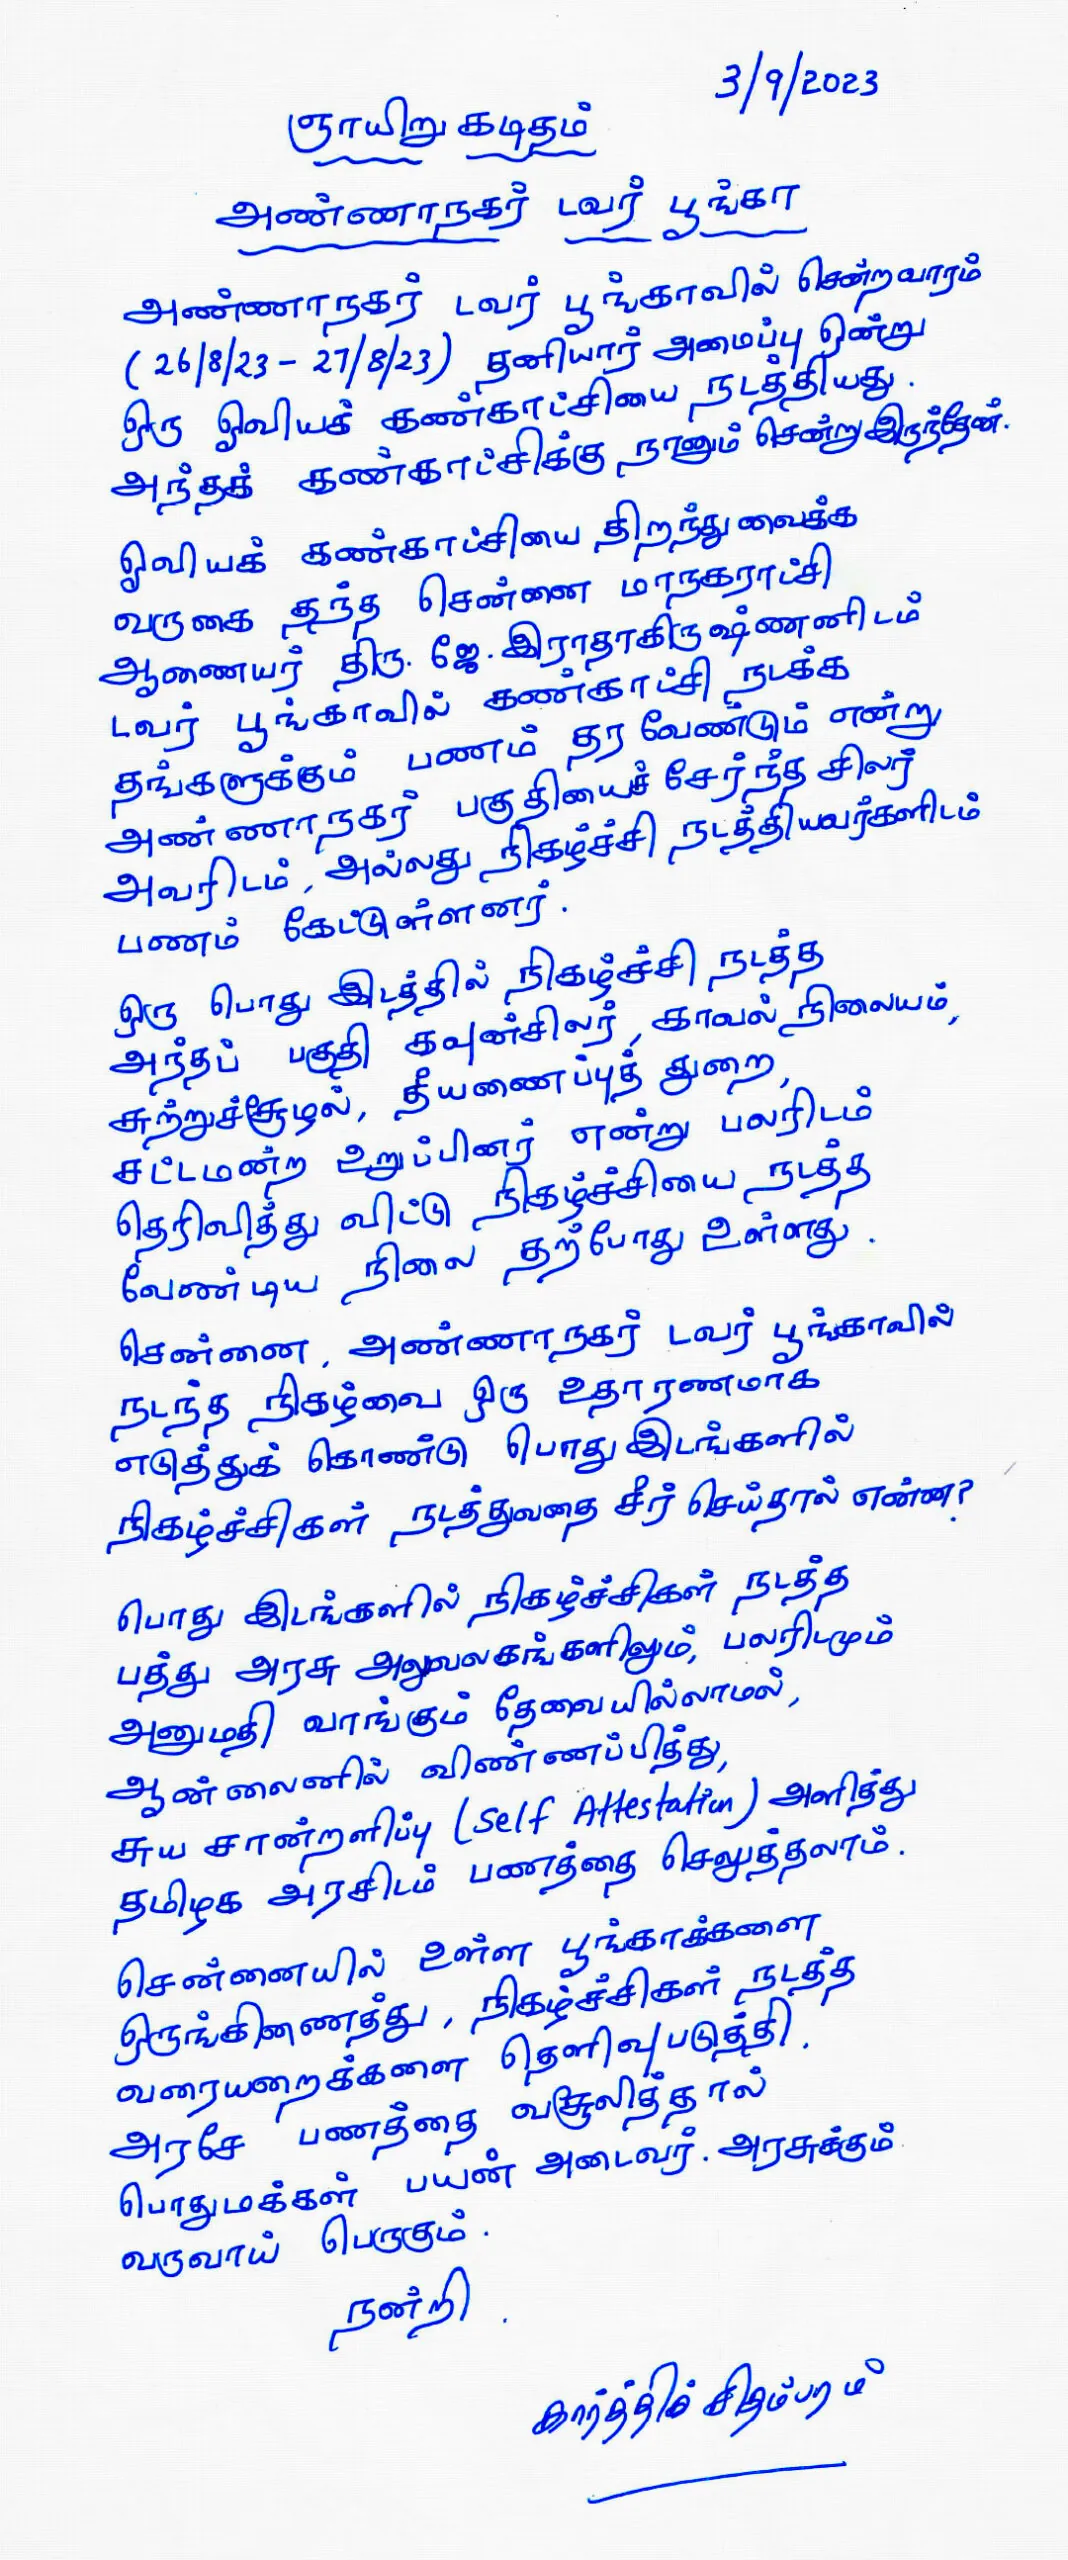 3/9/2023
ஞாயிறு கடிதம்
அண்ணாநகர் டவர் பூங்கா
அண்ணாநகர் டவர் பூங்காவில் சென்றவாரம்
(26/8/23 - 27/8/23) தனியார் அமைப்பு ஒன்று
ஒரு ஓவியக் கண்காட்சியை நடத்தியது.
அந்தக் கண்காட்சிக்கு நானும் சென்று இருந்தேன்.
ஓவியக் கண்காட்சியை திறந்து வைக்க
வருகை தந்த சென்னை மாநகராட்சி
ஆணையர் திரு. ஜே. இராதாகிருஷ்ணனிடம்
டவர் பூங்காவில் கண்காட்சி நடக்க
தங்களுக்கும் பணம் தர வேண்டும் என்று
அண்ணாநகர் பகுதியைச் சேர்ந்த சிலர்
அவரிடம், அல்லது நிகழ்ச்சி நடத்தியவர்களிடம்
பணம் கேட்டுள்ளனர்.
ஒரு பொது இடத்தில் நிகழ்ச்சி நடத்த
அந்தப் பகுதி கவுன்சிலர், காவல் நிலையம்,
சுற்றுச்சூழல், தீயணைப்புத் துறை,
சட்டமன்ற உறுப்பினர் என்று பலரிடம்
தெரிவித்து விட்டு நிகழ்ச்சியை நடத்த
வேண்டிய நிலை தற்போது உள்ளது.
சென்னை, அண்ணாநகர் டவர் பூங்காவில்
நடந்த நிகழ்வை ஒரு உதாரணமாக
எடுத்துக் கொண்டு பொது இடங்களில்
நிகழ்ச்சிகள் நடத்துவதை சீர் செய்தால் என்ன?
பொது இடங்களில் நிகழ்ச்சிகள் நடத்த
பத்து அரசு அலுவலகங்களிலும், பலரிடமும்
அனுமதி வாங்கும் தேவையில்லாமல்,
ஆன்லைனில் விண்ணப்பித்து,
சுய சான்றளிப்பு (Self Attestation) அளித்து
தமிழக அரசிடம் பணத்தை செலுத்தலாம்.
சென்னையில் உள்ள பூங்காக்களை
ஒருங்கிணைத்து, நிகழ்ச்சிகள் நடத்த
வரையறைக்களை தெளிவு படுத்தி.
அரசே பணத்தை வசூலித்தால்
பொதுமக்கள் பயன் அடைவர். அரசுக்கும்
வருவாய் பெருகும்.
நன்றி.
கார்த்திக் சிதம்பரம்